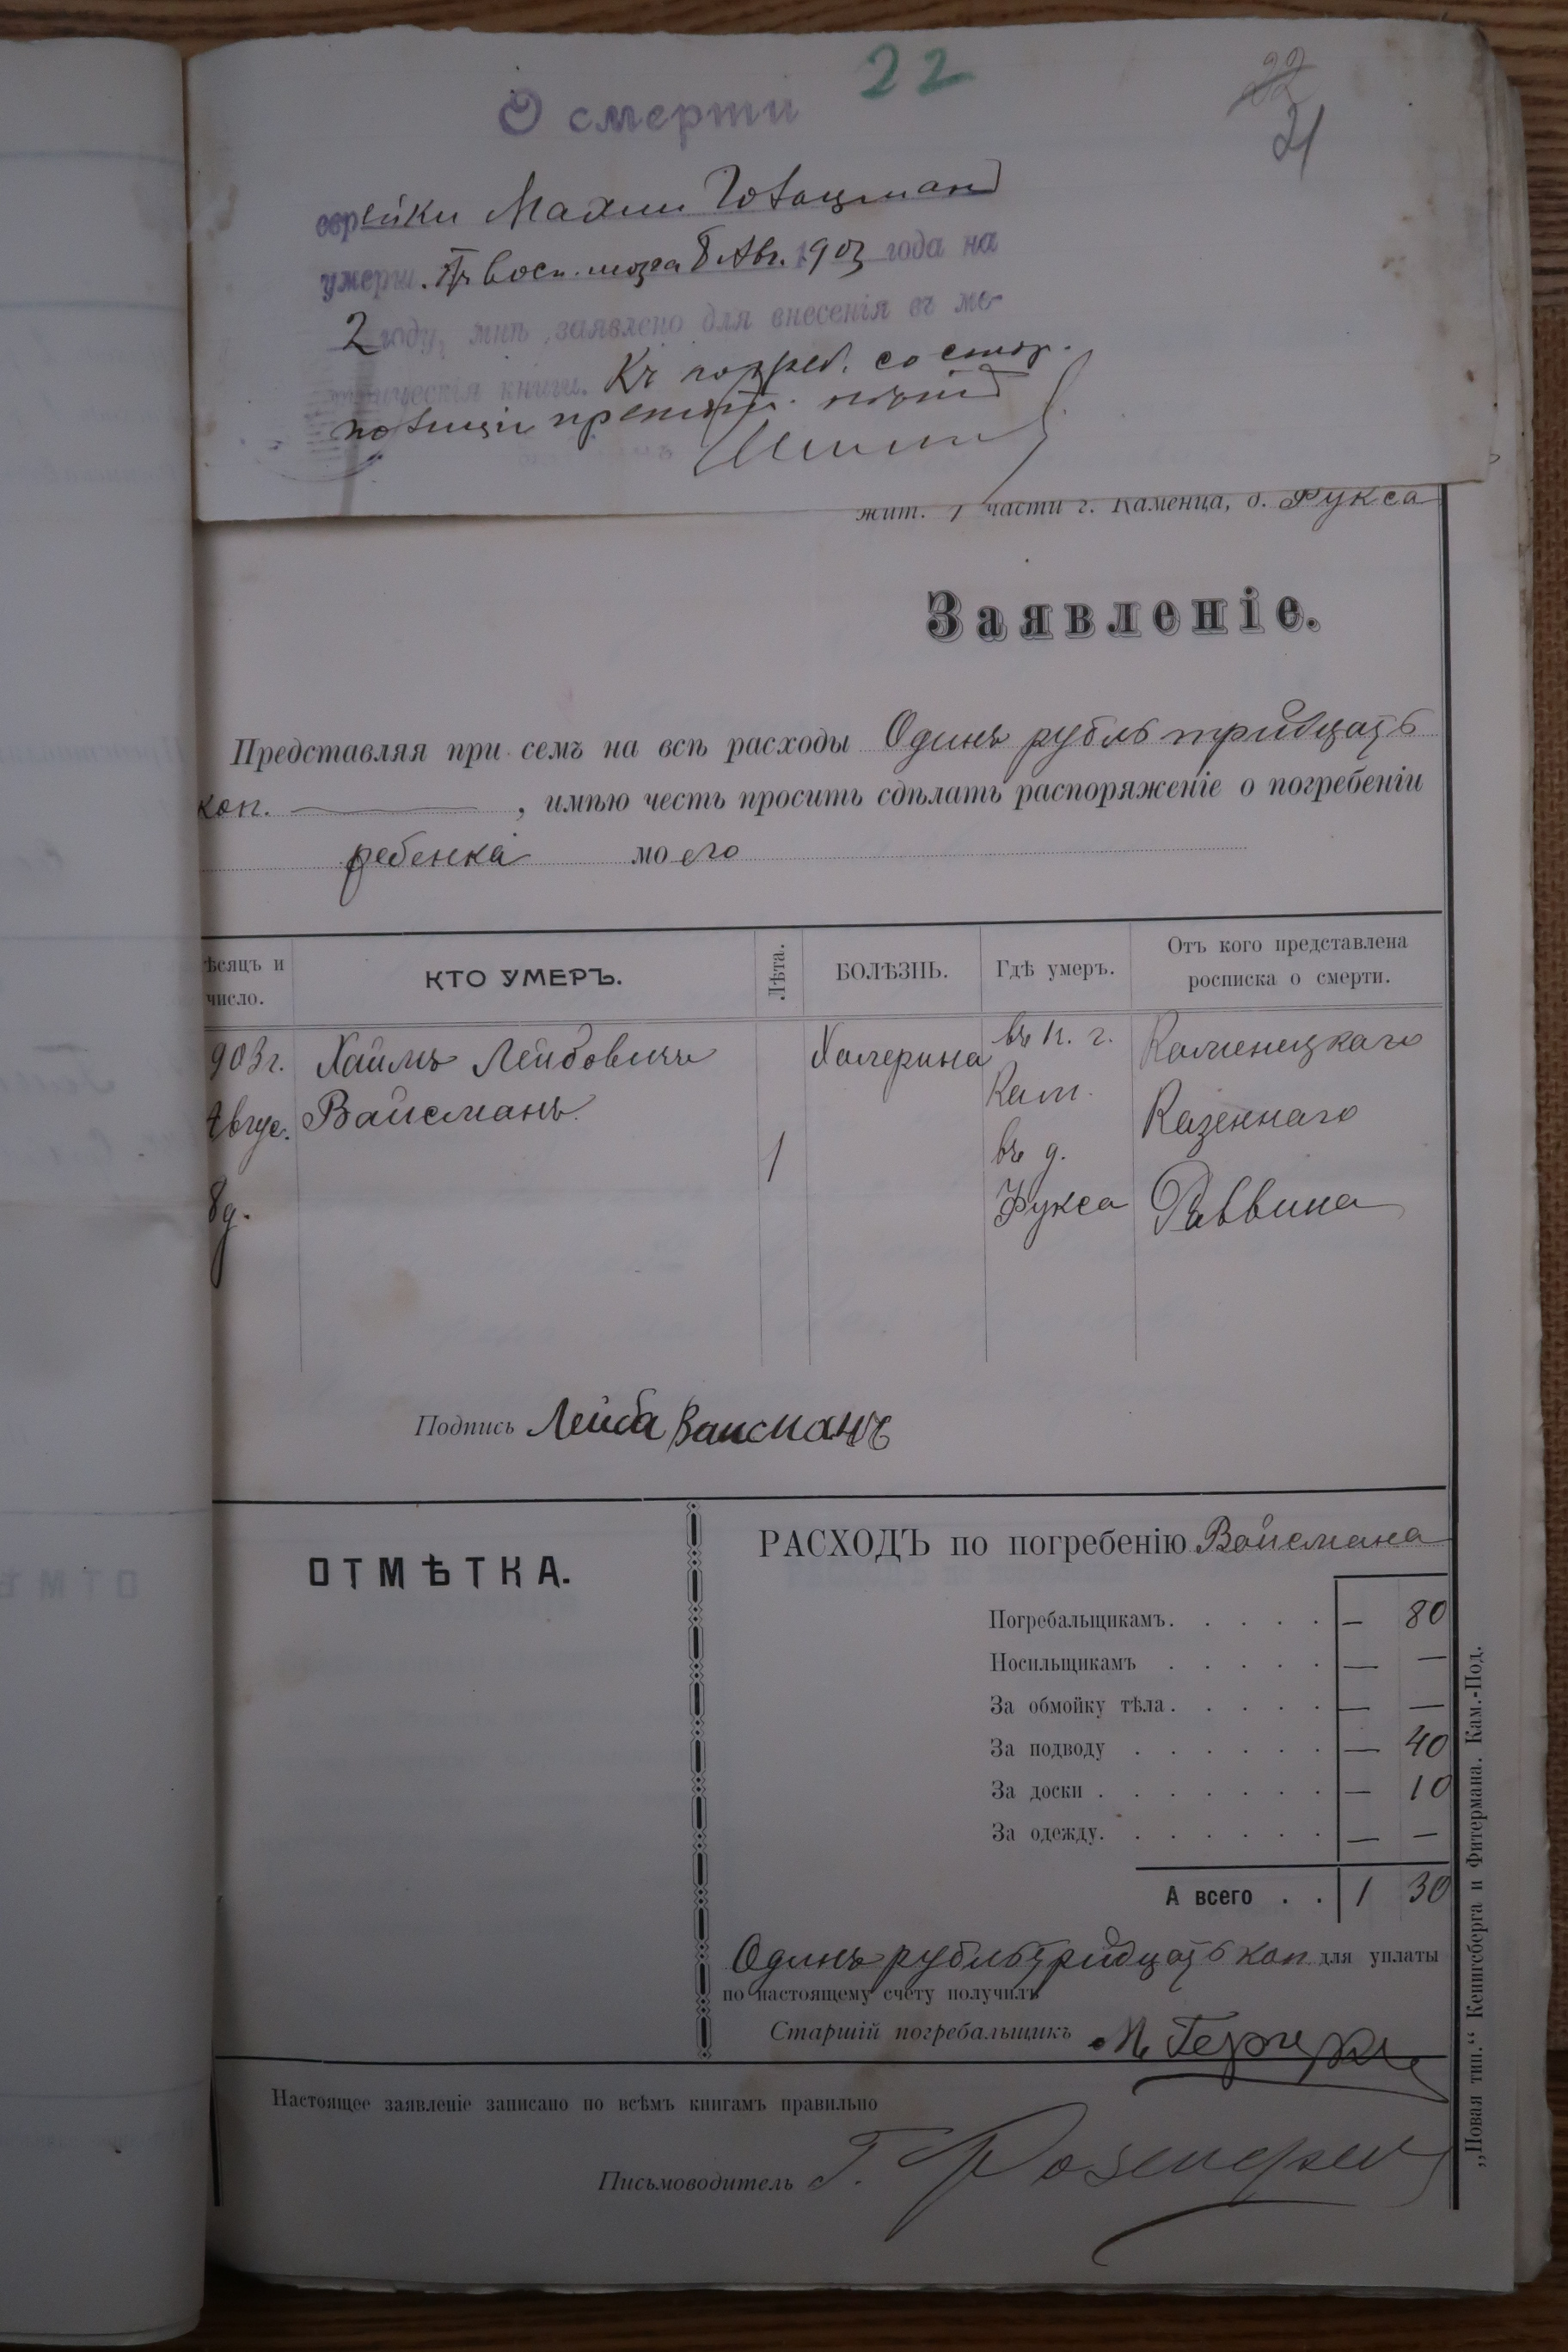 22
22
21
О смерти
еврейки Махли
умерш. восп. мозга 8 Авг. 1903 года на
2 году, мнѣ заявлено для внесенія въ ме-
трическія книги. Къ погреб. со стор.
полиціи препят. нѣтъ
жит. 1 части г. Каменца, д. Фукса
Заявленіе.
Представляя при семъ на всѣ расходы Одинъ рубль тридцать
коп. , имѣю честь просить сдѣлать распоряженіе о погребеніи
ребенка моего
ѣсяцъ и число.
КТО УМЕРЪ.
Лѣта.
БОЛѢЗНЬ.
Гдѣ умеръ.
Отъ кого представлена росписка о смерти.
903 г.
Авгус.
8 д.
Хаимъ Лейбовичъ
Вайсманъ.
1
Холерина
въ п. г.
Кам.
въ д.
Фукса
Каменецкаго
Казеннаго
Раввина
Подпись Лейба Вайсманъ
ОТМѢТКА.
РАСХОДЪ по погребенію Вайсмана
Погребальщикамъ. . . . . — 80
Носильщикамъ . . . . . — —
За обмойку тѣла. . . . . — —
За подводу . . . . . . — 40
За доски . . . . . . . — 10
За одежду. . . . . . . — —
А всего . . 1 30
Одинъ рубль тридцать коп для уплаты
по настоящему счету получилъ
Старшій погребальщикъ М.
Настоящее заявленіе записано по всѣмъ книгамъ правильно
Письмоводитель Г.
„Новая тип.“ Кенигсберга и Фитермана. Кам.-Под.